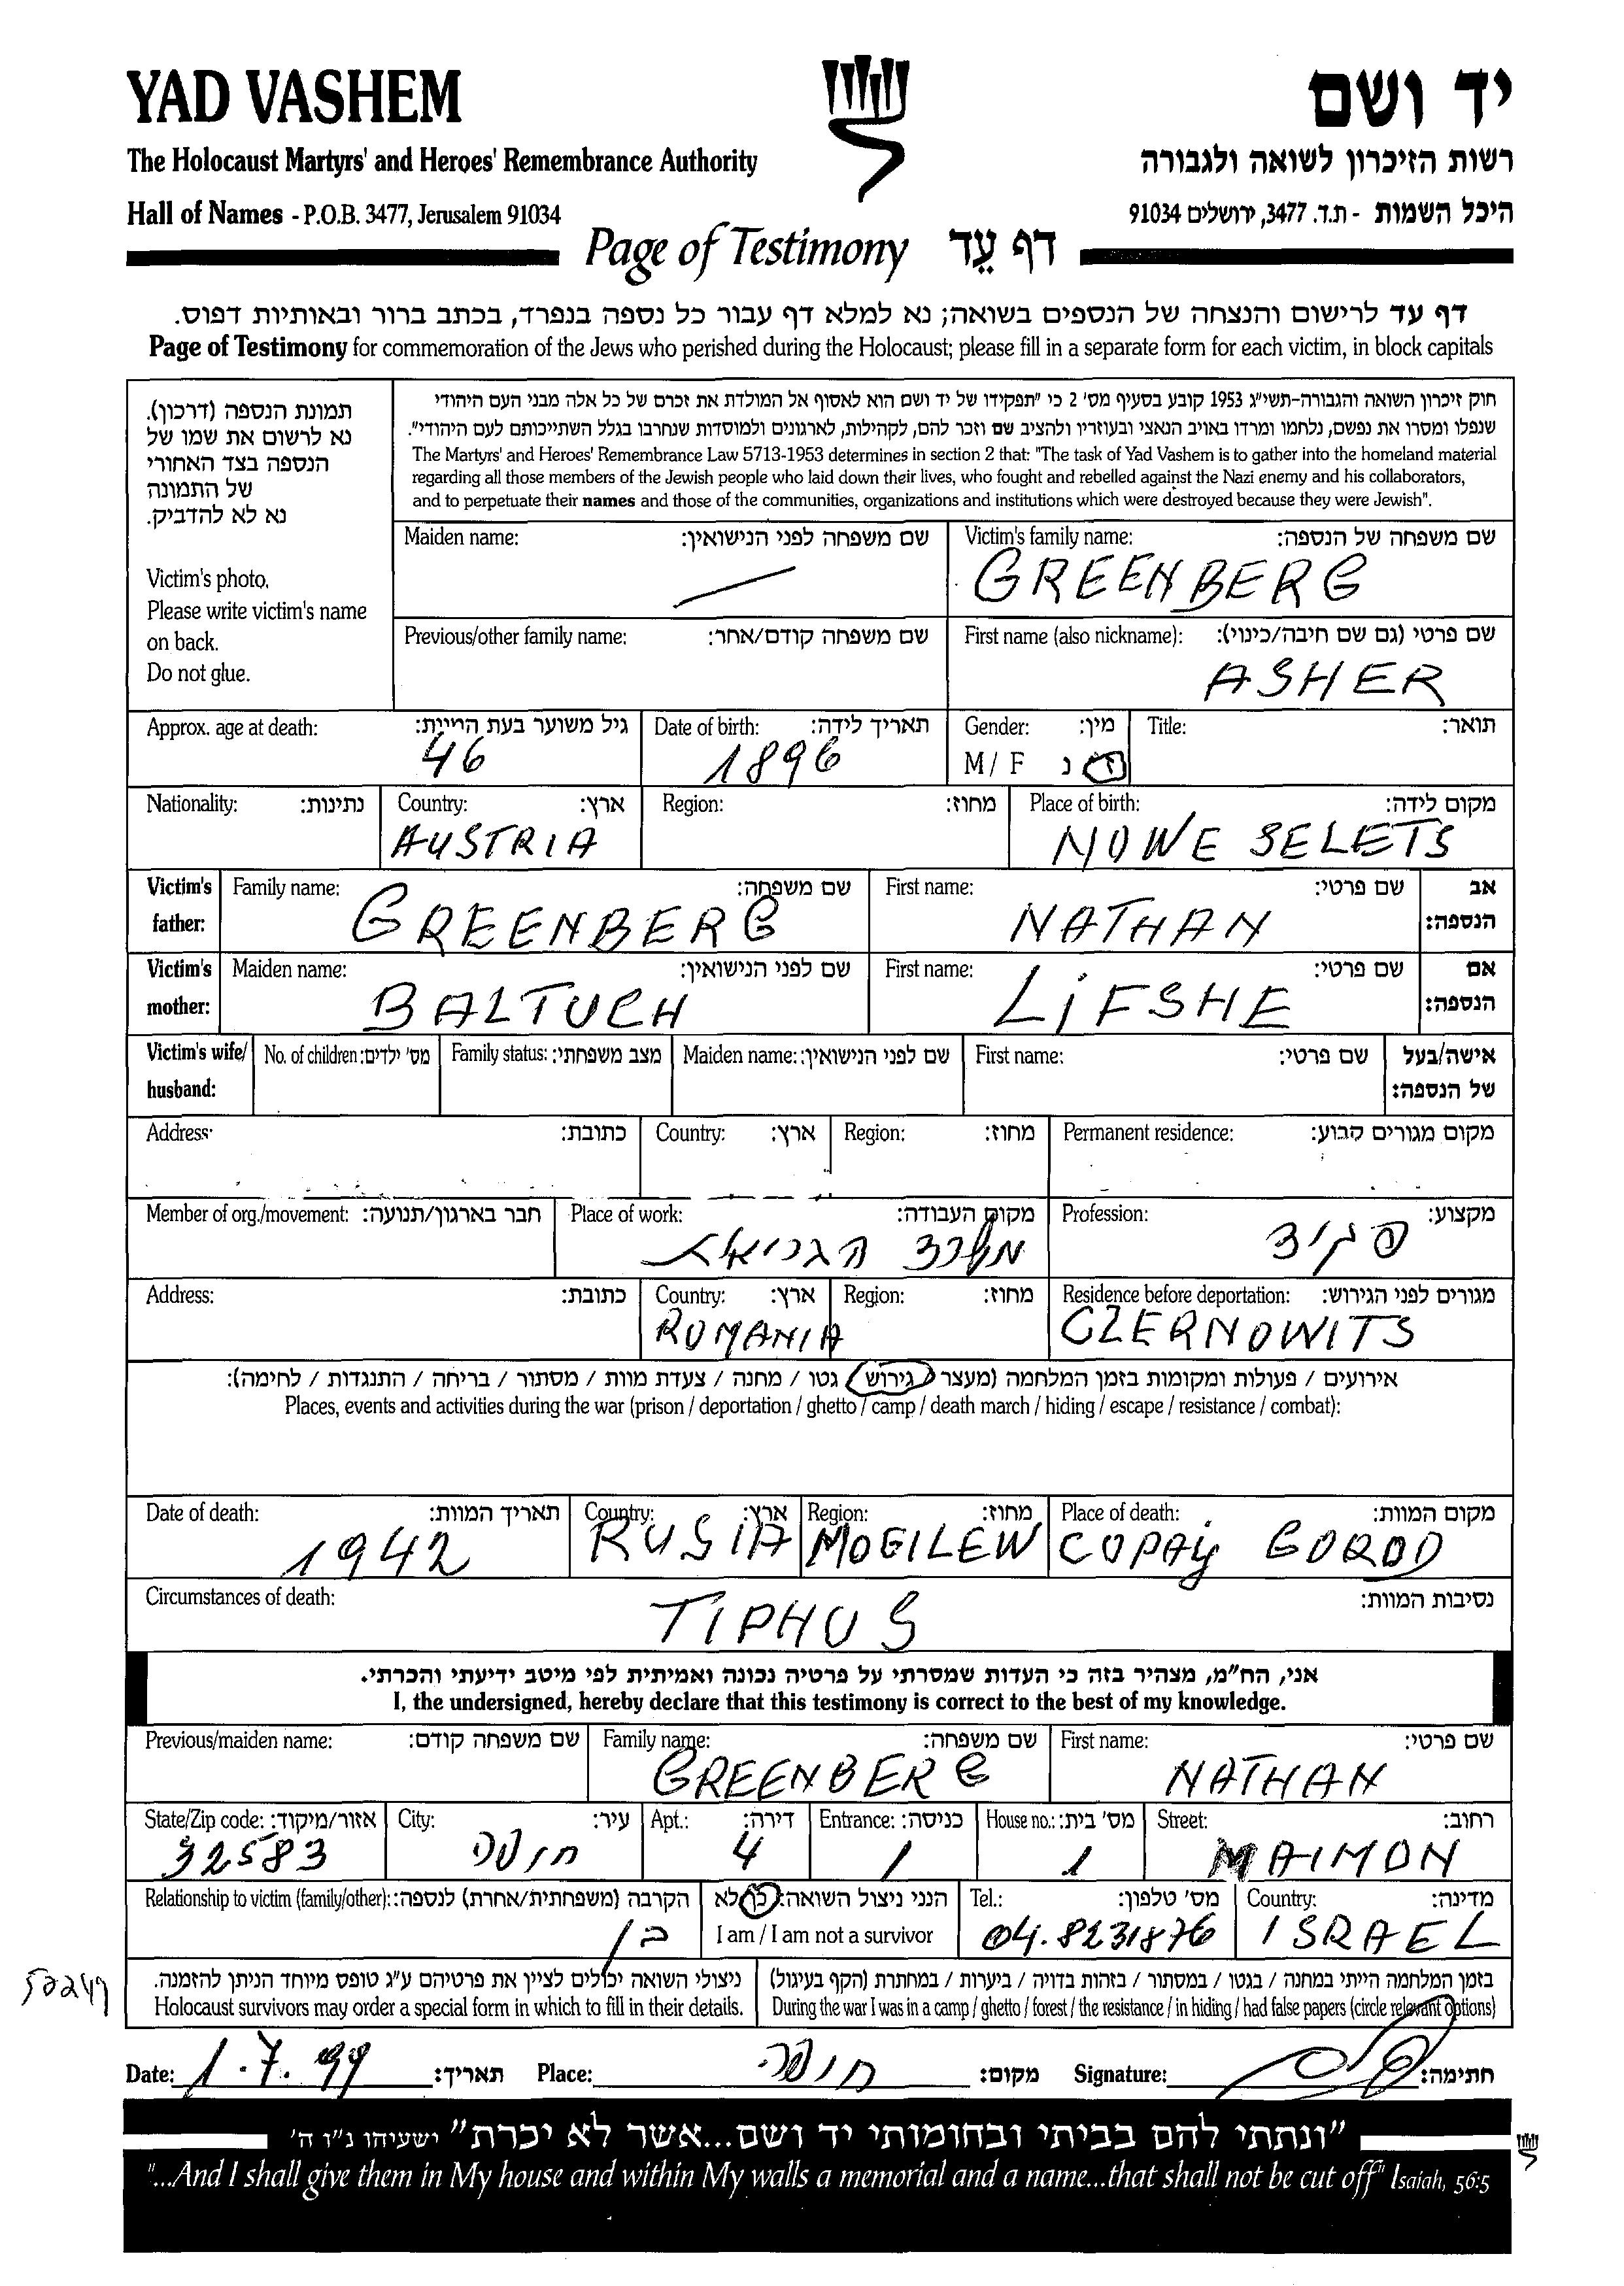 YAD VASHEM
יד ושם
The Holocaust Martyrs' and Heroes' Remembrance Authority
רשות הזיכרון לשואה ולגבורה
Hall of Names - P.O.B. 3477, Jerusalem 91034
היכל השמות - ת.ד. 3477, ירושלים 91034
Page of Testimony דף עֵד
דף עד לרישום והנצחה של הנספים בשואה; נא למלא דף עבור כל נספה בנפרד, בכתב ברור ובאותיות דפוס.
Page of Testimony for commemoration of the Jews who perished during the Holocaust; please fill in a separate form for each victim, in block capitals
תמונת הנספה (דרכון).
נא לרשום את שמו של
הנספה בצד האחורי
של התמונה
נא לא להדביק.
Victim's photo.
Please write victim's name
on back.
Do not glue.
חוק זיכרון השואה והגבורה-תשי"ג 1953 קובע בסעיף מס' 2 כי "תפקידו של יד ושם הוא לאסוף אל המולדת את זכרם של כל אלה מבני העם היהודי
שנפלו ומסרו את נפשם, נלחמו ומרדו באויב הנאצי ובעוזריו ולהציב שם וזכר להם, לקהילות, לארגונים ולמוסדות שנחרבו בגלל השתייכותם לעם היהודי".
The Martyrs' and Heroes' Remembrance Law 5713-1953 determines in section 2 that: "The task of Yad Vashem is to gather into the homeland material
regarding all those members of the Jewish people who laid down their lives, who fought and rebelled against the Nazi enemy and his collaborators,
and to perpetuate their names and those of the communities, organizations and institutions which were destroyed because they were Jewish".
Maiden name: שם משפחה לפני הנישואין:
Victim's family name: שם משפחה של הנספה:
GREENBERG
Previous/other family name: שם משפחה קודם/אחר:
First name (also nickname): שם פרטי (גם שם חיבה/כינוי):
ASHER
Approx. age at death: גיל משוער בעת המיתה:
46
Date of birth: תאריך לידה:
1896
Gender: מין:
M / F ז נ
Title: תואר:
Nationality: נתינות:
Country: ארץ:
AUSTRIA
Region: מחוז:
Place of birth: מקום לידה:
NOWE SELETS
Victim's father:
Family name: שם משפחה:
GREENBERG
First name: שם פרטי:
NATHAN
אב הנספה:
Victim's mother:
Maiden name: שם לפני הנישואין:
BALTUCH
First name: שם פרטי:
LIFSHE
אם הנספה:
Victim's wife/ husband:
No. of children: מס' ילדים:
Family status: מצב משפחתי:
Maiden name: שם לפני הנישואין:
First name: שם פרטי:
אישה/בעל של הנספה:
Address: כתובת:
Country: ארץ:
Region: מחוז:
Permanent residence: מקום מגורים קבוע:
Member of org./movement: חבר בארגון/תנועה:
Place of work: מקום העבודה:
משרד הבריאות
Profession: מקצוע:
פקיד
Address: כתובת:
Country: ארץ:
ROMANIA
Region: מחוז:
Residence before deportation: מגורים לפני הגירוש:
CZERNOWITS
אירועים / פעולות ומקומות בזמן המלחמה (מעצר / גירוש / גטו / מחנה / צעדת מוות / מסתור / בריחה / התנגדות / לחימה):
Places, events and activities during the war (prison / deportation / ghetto / camp / death march / hiding / escape / resistance / combat):
Date of death: תאריך המוות:
1942
Country: ארץ:
RUSIA
Region: מחוז:
MOGILEW
Place of death: מקום המוות:
COPAY GOROD
Circumstances of death: נסיבות המוות:
TIPHUS
אני, הח"מ, מצהיר בזה כי העדות שמסרתי על פרטיה נכונה ואמיתית לפי מיטב ידיעתי והכרתי.
I, the undersigned, hereby declare that this testimony is correct to the best of my knowledge.
Previous/maiden name: שם משפחה קודם:
Family name: שם משפחה:
GREENBERG
First name: שם פרטי:
NATHAN
State/Zip code: אזור/מיקוד:
32583
City: עיר:
חיפה
Apt.: דירה:
4
Entrance: כניסה:
1
House no.: מס' בית:
1
Street: רחוב:
MAIMON
Relationship to victim (family/other): הקרבה (משפחתית/אחרת) לנספה:
בן
הנני ניצול השואה: כן/לא
I am / I am not a survivor
Tel.: מס' טלפון:
04.8231876
Country: מדינה:
ISRAEL
ניצולי השואה יכולים לציין את פרטיהם ע"ג טופס מיוחד הניתן להזמנה.
Holocaust survivors may order a special form in which to fill in their details.
בזמן המלחמה הייתי במחנה / בגטו / במסתור / בזהות בדויה / ביערות / במחתרת (הקף בעיגול)
During the war I was in a camp / ghetto / forest / the resistance / in hiding / had false papers (circle relevant options)
Date: 1.7.99 תאריך:
Place: חיפה מקום:
Signature: חתימה:
"ונתתי להם בביתי ובחומותי יד ושם...אשר לא יכרת" ישעיהו נ"ו ה'
"...And I shall give them in My house and within My walls a memorial and a name...that shall not be cut off" Isaiah, 56:5